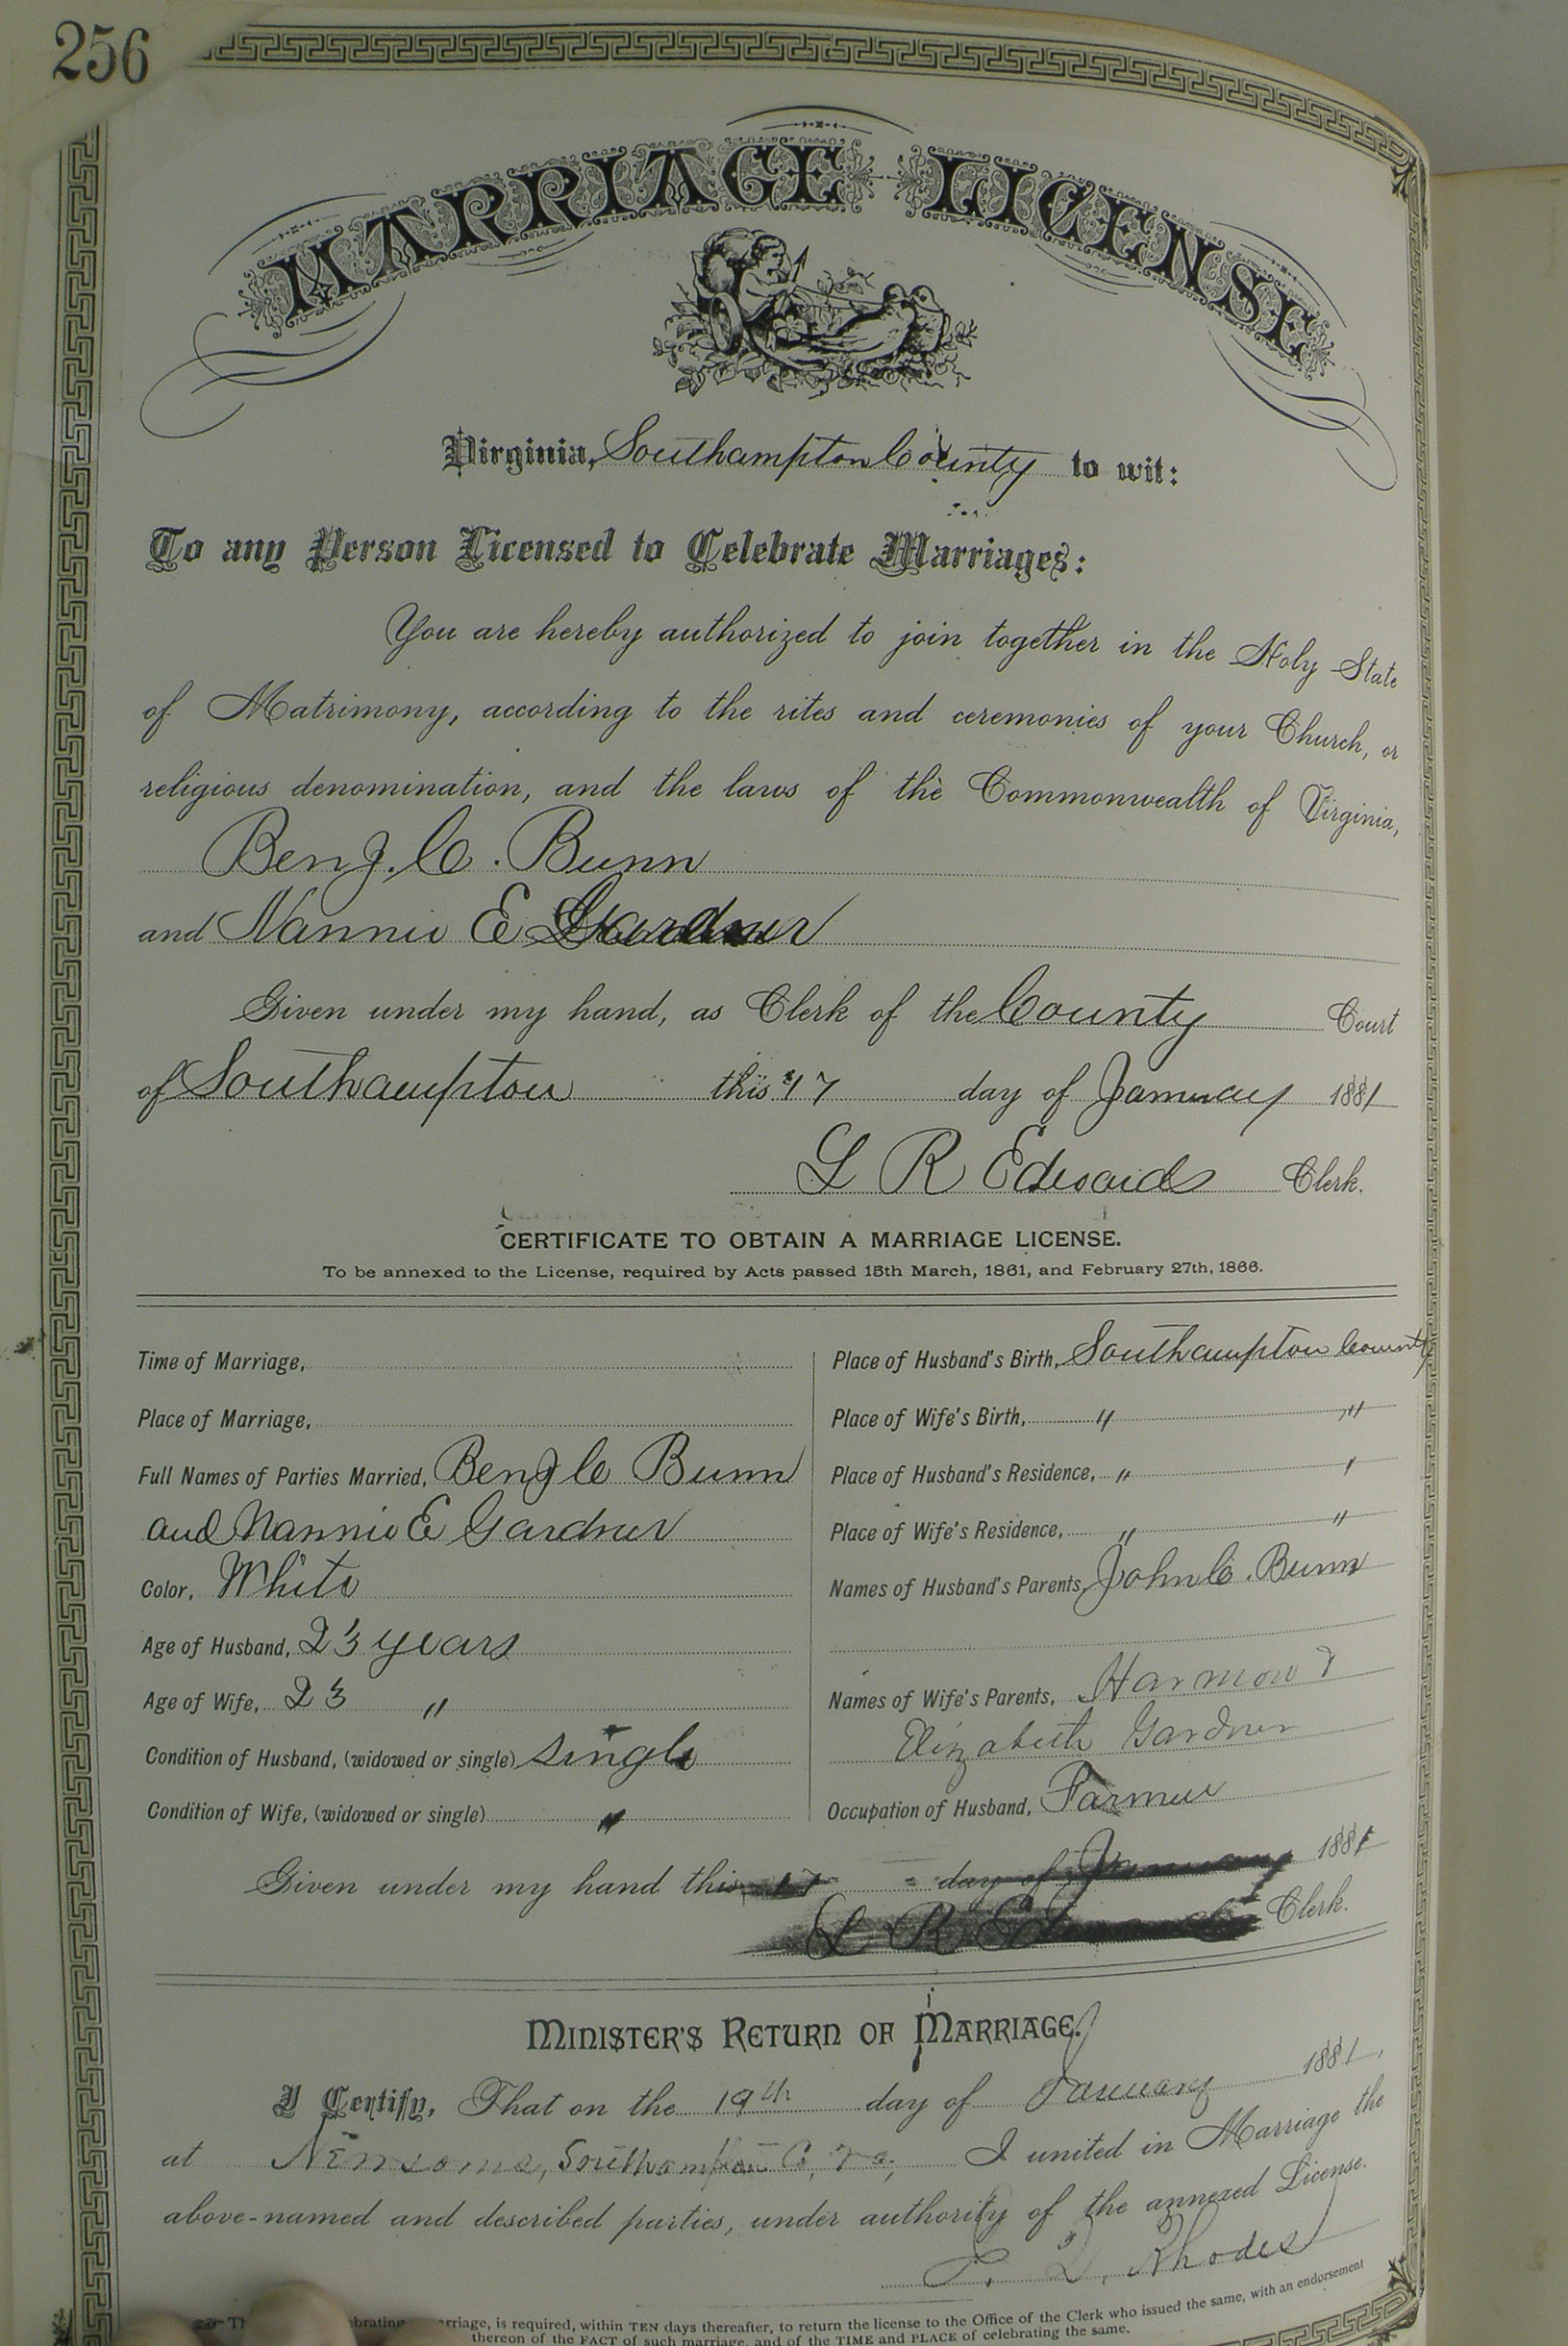 256
MARRIAGE LICENSE
Virginia, Southampton County to wit:
To any Person Licensed to Celebrate Marriages:
You are hereby authorized to join together in the Holy State
of Matrimony, according to the rites and ceremonies of your Church, or
religious denomination, and the laws of the Commonwealth of Virginia,
Benj. C. Bunn
and Nannie E Gardner
Given under my hand, as Clerk of the County Court
of Southampton this 17 day of January 1881
L R Edwards Clerk.
CERTIFICATE TO OBTAIN A MARRIAGE LICENSE.
To be annexed to the License, required by Acts passed 15th March, 1861, and February 27th, 1866.
Time of Marriage,
Place of Marriage,
Full Names of Parties Married, Benj C Bunn
and Nannie E Gardner
Color, White
Age of Husband, 23 years
Age of Wife, 23 "
Condition of Husband, (widowed or single) single
Condition of Wife, (widowed or single) "
Place of Husband's Birth, Southampton County
Place of Wife's Birth, " "
Place of Husband's Residence, " "
Place of Wife's Residence, " "
Names of Husband's Parents, John C. Bunn
Names of Wife's Parents, Harmon &
Elizabeth Gardner
Occupation of Husband, Farmer
Given under my hand this 17 day of January 1881
L R Edwards Clerk.
MINISTER'S RETURN OF MARRIAGE.
I Certify, That on the 19th day of January 1881,
at Newsoms, Southampton Co, Va, I united in Marriage the
above-named and described parties, under authority of the annexed License.
Rhodes
rriage, is required, within TEN days thereafter, to return the license to the Office of the Clerk who issued the same, with an endorsement
thereon of the FACT of such marriage, and of the TIME and PLACE of celebrating the same.